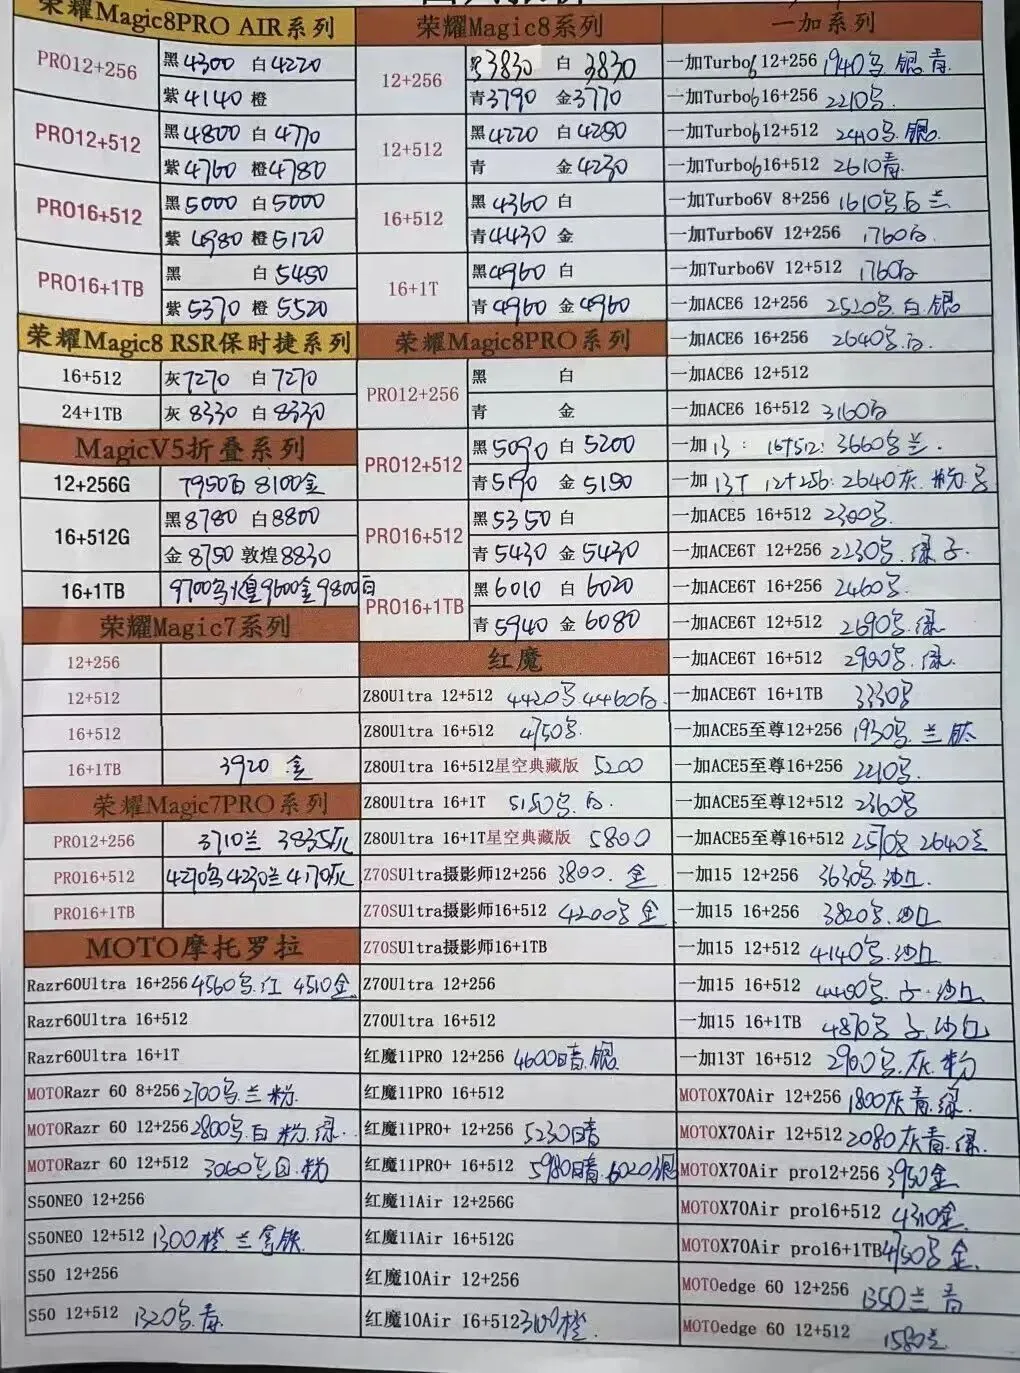 荣耀Magic8PRO AIR系列
PRO12+256 黑4300 白4220
紫4140 橙
PRO12+512 黑4800 白4770
紫4760 橙4780
PRO16+512 黑5000 白5000
紫4980 橙5120
PRO16+1TB 黑 白5450
紫5370 橙5520
荣耀Magic8 RSR保时捷系列
16+512 灰7270 白7270
24+1TB 灰8330 白8330
MagicV5折叠系列
12+256G 7950白 8100金
16+512G 黑8780 白8800
金8750 敦煌8830
16+1TB 9700 煌9600金9800白
荣耀Magic7系列
12+256
12+512
16+512
16+1TB 3920 金
荣耀Magic7PRO系列
PRO12+256 3710兰 3835灰
PRO16+512 4270 4230兰4170灰
PRO16+1TB
MOTO摩托罗拉
Razr60Ultra 16+256 4560 红 4510金
Razr60Ultra 16+512
Razr60Ultra 16+1T
MOTORazr 60 8+256 2700 兰 粉
MOTORazr 60 12+256 2800 白 粉.绿
MOTORazr 60 12+512 3060 白 粉
S50NEO 12+256
S50NEO 12+512 1300橙 兰
S50 12+256
S50 12+512 1320 青
荣耀Magic8系列
12+256 黑3830 白 3830
青3790 金3770
12+512 黑4220 白4250
青 金4230
16+512 黑4360 白
青4430 金
16+1T 黑4960 白
青4960 金4960
荣耀Magic8PRO系列
PRO12+256 黑 白
青 金
PRO12+512 黑5090 白5200
青5190 金5190
PRO16+512 黑5350 白
青5430 金5430
PRO16+1TB 黑6010 白6020
青5940 金6080
红魔
Z80Ultra 12+512 4420 4460白
Z80Ultra 16+512 4750
Z80Ultra 16+512星空典藏版 5200
Z80Ultra 16+1T 5150 白
Z80Ultra 16+1T星空典藏版 5800
Z70SUltra摄影师12+256 3800. 金
Z70SUltra摄影师16+512 4200 金
Z70SUltra摄影师16+1TB
Z70Ultra 12+256
Z70Ultra 16+512
红魔11PRO 12+256 4600暗.银
红魔11PRO 16+512
红魔11PRO+ 12+256 5230暗
红魔11PRO+ 16+512 5980暗.6020银
红魔11Air 12+256G
红魔11Air 16+512G
红魔10Air 12+256
红魔10Air 16+512 3100橙
一加系列
一加Turbo6 12+256 1940 银 青
一加Turbo6 16+256 2210
一加Turbo6 12+512 2410 银
一加Turbo6 16+512 2610青
一加Turbo6V 8+256 1610 白 兰
一加Turbo6V 12+256 1760白
一加Turbo6V 12+512 1760白
一加ACE6 12+256 2520 白.银
一加ACE6 16+256 2640 白
一加ACE6 12+512
一加ACE6 16+512 3160白
一加13: 16+512: 3660 兰
一加 13T 12+256: 2640灰.粉
一加ACE5 16+512 2300
一加ACE6T 12+256 2230 绿
一加ACE6T 16+256 2460
一加ACE6T 12+512 2690 绿
一加ACE6T 16+512 2900 绿
一加ACE6T 16+1TB 3330
一加ACE5至尊12+256 1930 兰 钛
一加ACE5至尊16+256 2210
一加ACE5至尊12+512 2360
一加ACE5至尊16+512 2570 2640兰
一加15 12+256 3630 沙丘
一加15 16+256 3820 沙丘
一加15 12+512 4140 沙丘
一加15 16+512 4400 沙丘
一加15 16+1TB 4870 沙丘
一加13T 16+512 2900 灰.粉
MOTOX70Air 12+256 1800灰青.绿
MOTOX70Air 12+512 2080灰青.绿
MOTOX70Air pro12+256 3950金
MOTOX70Air pro16+512 4310金
MOTOX70Air pro16+1TB 4750 金
MOTOedge 60 12+256 1350兰 青
MOTOedge 60 12+512 1580兰